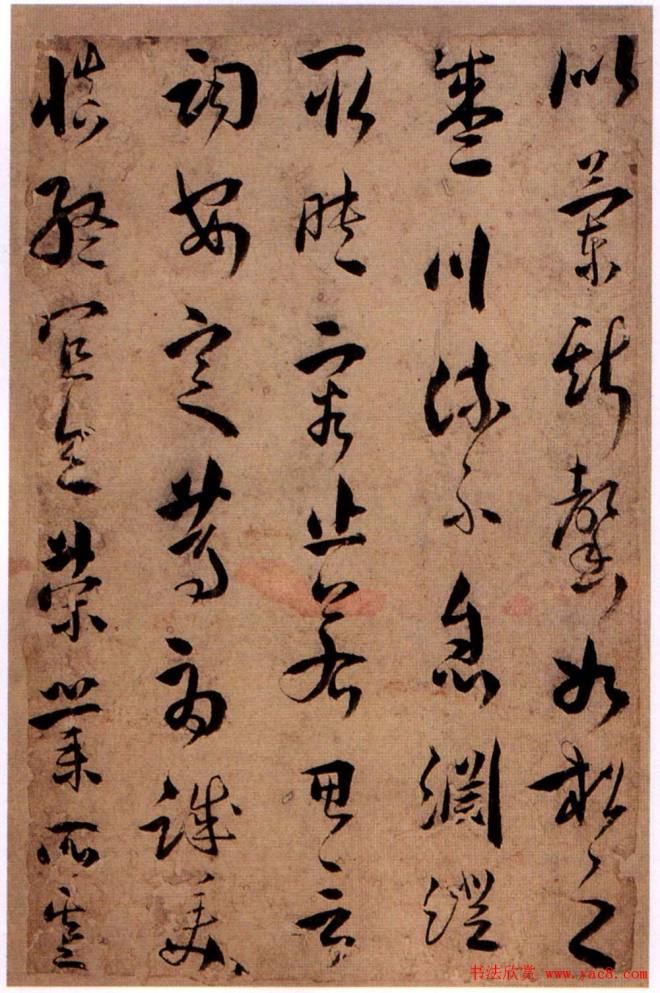 似蘭斯馨如松之
盛川流不息淵澄
取映容止若思言
詞安定篤初誠美
慎終宜令榮業所基
书法欣赏 www.yac8.com